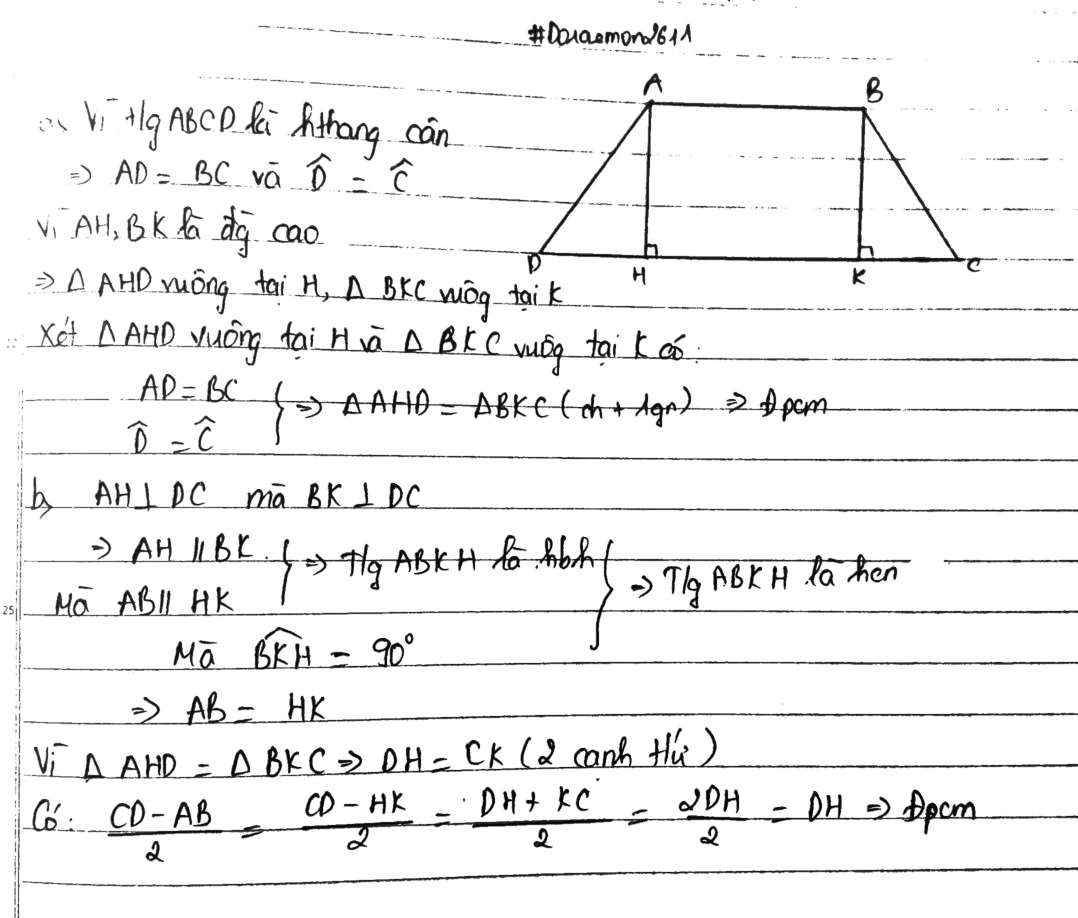 #Doraemon2611
A B
a, Vì t/g ABCD là hthang cân
⇒ AD = BC và D̂ = Ĉ
Vì AH, BK là đg cao
D H K C
⇒ Δ AHD vuông tại H, Δ BKC vuôg tại K
Xét Δ AHD vuông tại H và Δ BKC vuôg tại K có:
AD = BC
D̂ = Ĉ } ⇒ Δ AHD = Δ BKC (ch + 1gn) ⇒ Đpcm
b, AH ⊥ DC mà BK ⊥ DC
⇒ AH // BK
Mà AB // HK } ⇒ T/g ABKH là hbh
Mà B̂KH = 90° } ⇒ T/g ABKH là hcn
⇒ AB = HK
Vì Δ AHD = Δ BKC ⇒ DH = CK (2 cạnh t/ứ)
Có: CD - AB / 2 = CD - HK / 2 = DH + KC / 2 = 2DH / 2 = DH ⇒ Đpcm
25